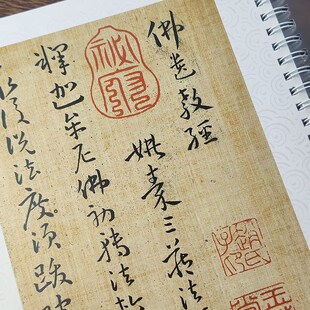 佛遺教經
姚秦三藏法
釋迦牟尼佛初轉法
後說法度須跋